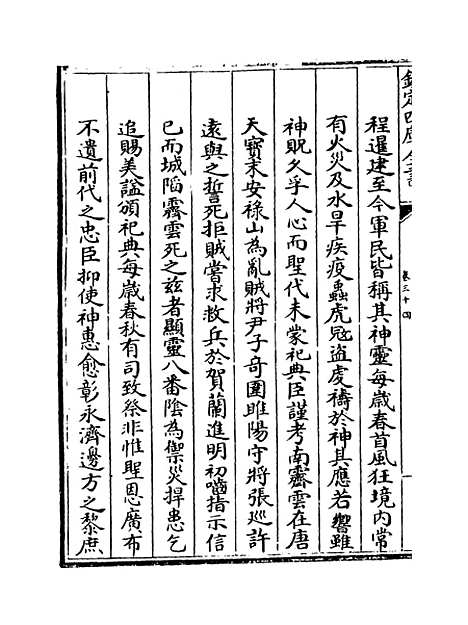 欽定四庫全書
卷三十四
程暹建至今軍民皆稱其神靈每歲春首風狂境内常
有火災及水旱疾疫蟲虎冦盗虔禱於神其應若響雖
神貺久乎人心而聖代未蒙祀典臣謹考南霽雲在唐
天寶末安祿山為亂賊將尹子奇圍睢陽守將張巡許
遠與之誓死拒賊嘗求救兵於賀蘭進明初嚙指示信
已而城陷霽雲死之兹者顯靈八番陰為禦災捍患乞
追賜美謚頒祀典每歲春秋有司致祭非惟聖恩廣布
不遺前代之忠臣抑使神惠愈彰永濟邊方之黎庶